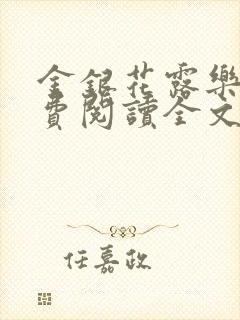 金銀花露樂
費閱讀全文
任嘉政